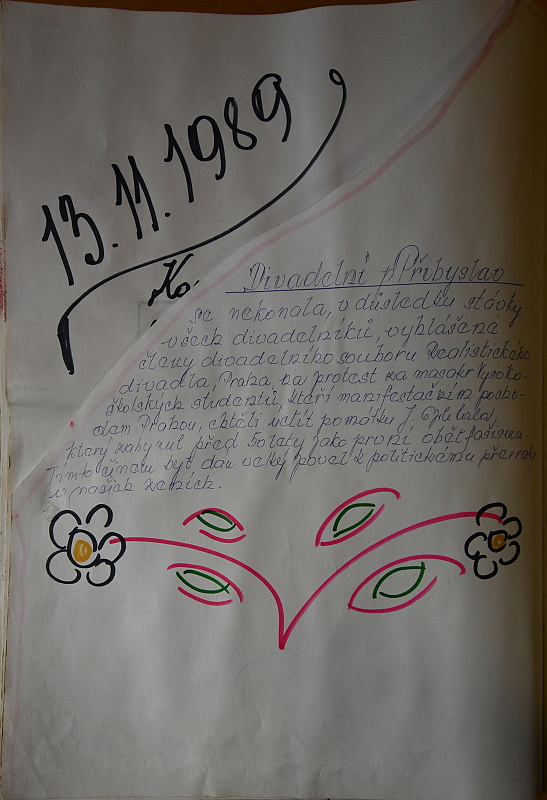 13.11.1989
Ko.
Divadelní Přibyslav
se nekonala, v důsledku stávky
všech divadelníků, vyhlášené
členy divadelního souboru Realistického
divadla, Praha na protest za masakr vysoko-
školských studentů, kteří manifestačním pocho-
dem Prahou, chtěli uctít památku J.
který zahynul před 50 léty jako první oběť fašismu.
Tímto činem byl dán velký povel k politickému převratu
v našich zemích.